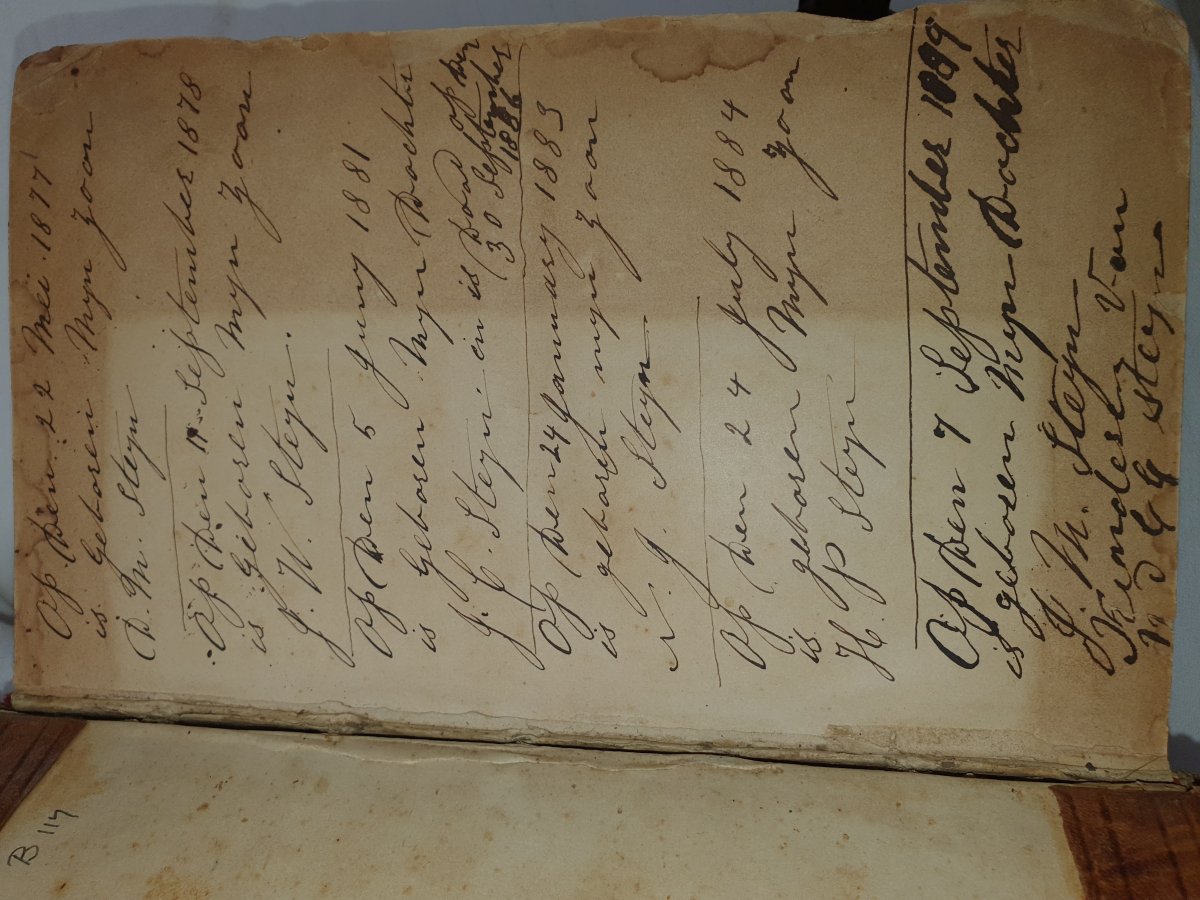 Op Den 22 Mei 1877
is Geboren Myn Zoon
D. M. Steyn
Op Den 11 September 1878
is Geboren Myn Zoon
J. W. Steyn.
Op Den 5 Juny 1881
is Geboren Myn Dochter
J. C. Steyn en is Dood op den
30 September
1886
Op Den 24 January 1883
is geboren myn Zoon
N. J. Steyn
Op Den 24 July 1884
is geboren Myn Zoon
H. P Steyn
Op Den 7 September 1889
is geboren Myn Dochter
J. M. Steyn
Kinders Van
N J G Steyn
B 114